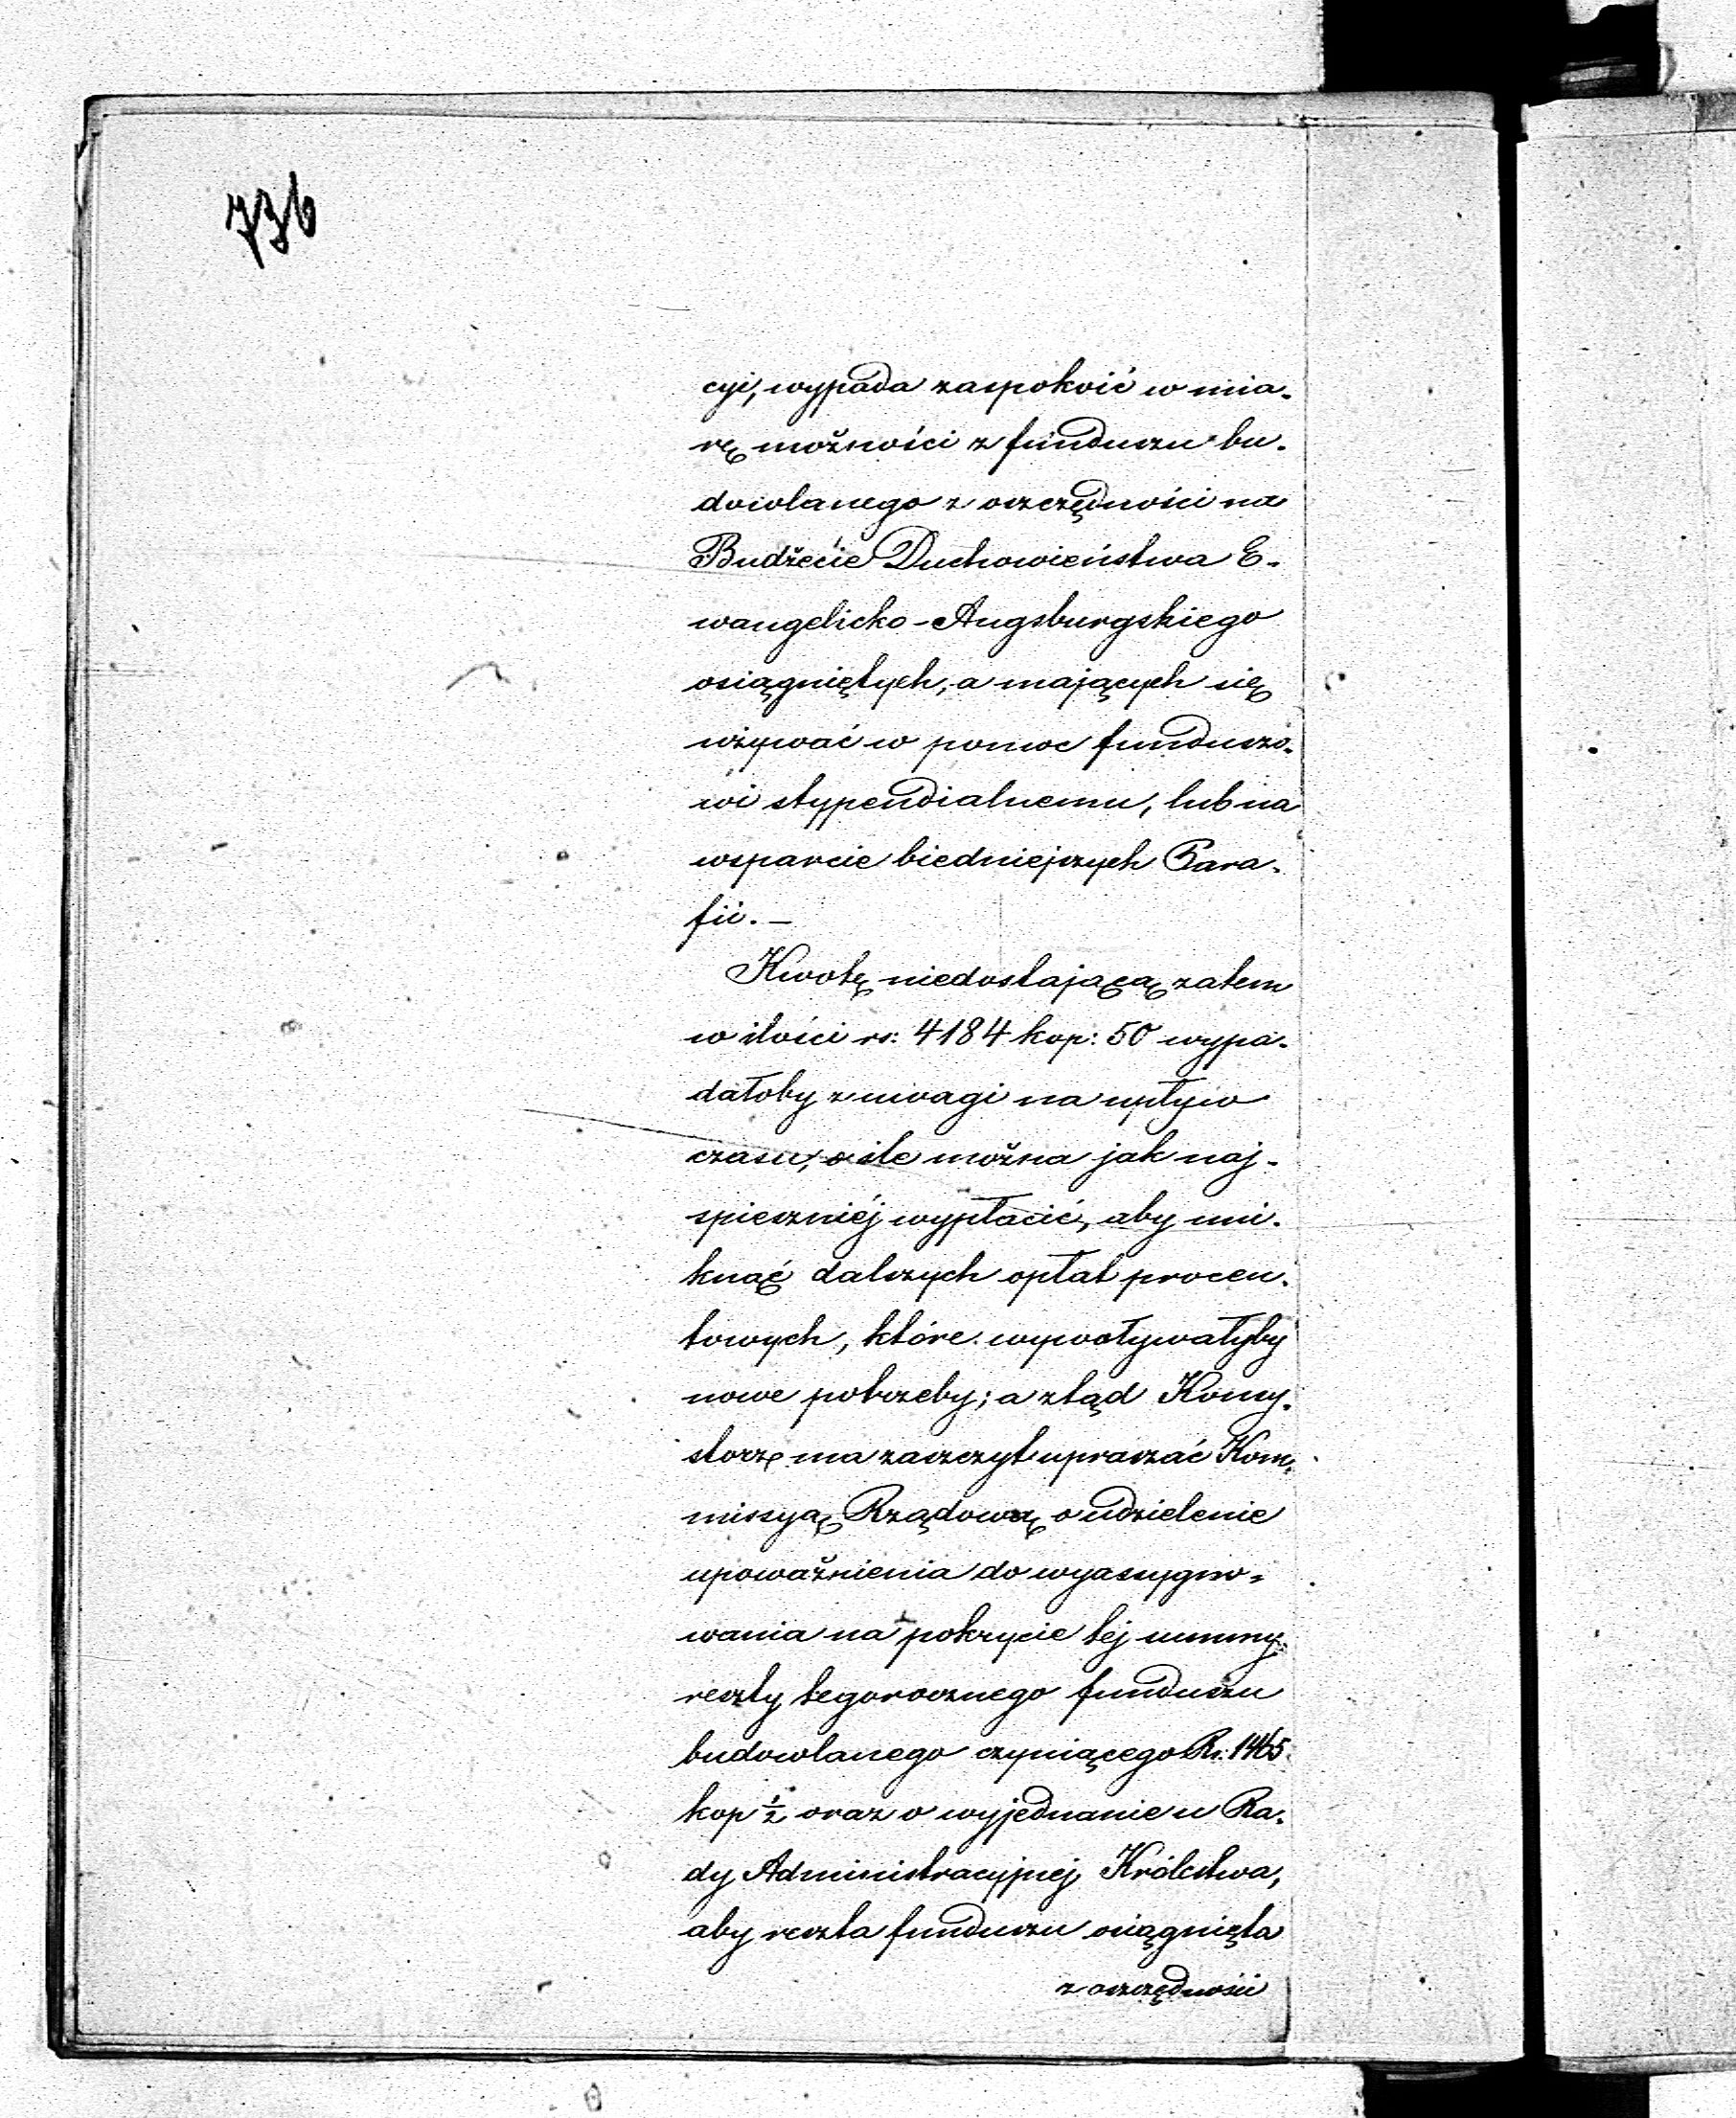 736
cyi, wypada zaspokoić w mia-
rę możności z funduszu bu-
dowlanego z oszczędności na
Budżecie Duchowieństwa E-
wangelicko-Augsburgskiego
osiągniętych, a mających się
używać w pomoc funduszo-
wi stypendialnemu, lub na
wsparcie biedniejszych Para-
fii. —
Kwotę niedostającą zatem
w ilości rs: 4184 kop: 50 wypa-
dałoby z uwagi na upływ
czasu, o ile można jak naj-
spieszniéj wypłacić, aby uni-
knąć dalszych opłat procen-
towych, które wywoływałyby
nowe potrzeby; a ztąd Konsy-
storz ma zaszczyt upraszać Kom-
missyą Rządową o udzielenie
upoważnienia do wyassygno-
wania na pokrycie tej summy
reszty tegorocznego funduszu
budowlanego czyniącego Rs. 1465
kop ½ oraz o wyjednanie u Ra-
dy Administracyjnej Królestwa,
aby reszta funduszu osiągnięta
z oszczędności